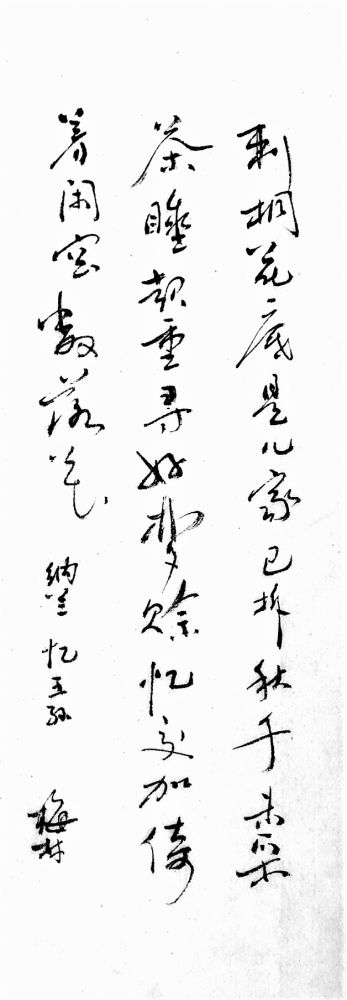 刺桐花底是儿家已拆秋千未采
茶睡起重寻好梦赊忆交加倚
着闲窗数落花 纳兰 忆王孙 梅村